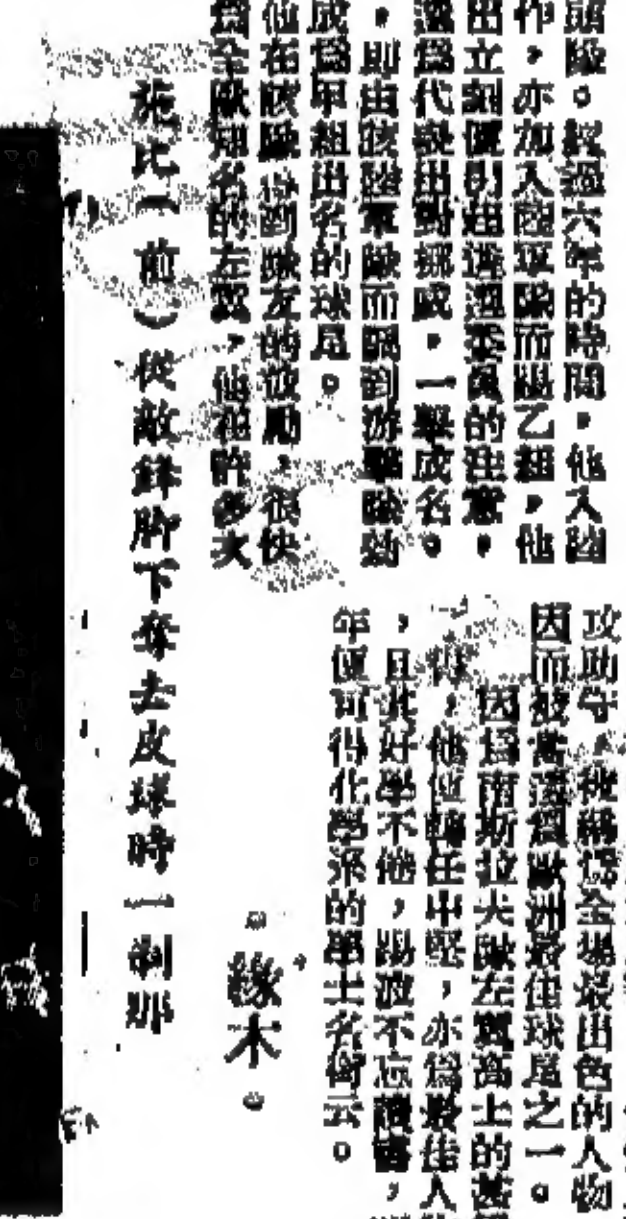 險。經過六年的時間，他入陸
作，亦加入陸軍隊而踢乙組，他
出立刻便引起選選委員的注意，
選爲代表出對挪威，一擊成名。
，即由該陸軍隊而踢到游擊隊効
成爲甲組出名的球星。
他在該隊得到隊友的鼓勵，很快
爲全歐知名的左翼，他在許多次
攻助守，被稱爲全場最出色的人物
因而被當選爲歐洲最佳球星之一。
因爲南斯拉夫隊左翼高士的舊
，他便轉任中堅，亦爲最佳人
，且其好學不倦，踢波不忘讀書，
年便可得化學系的學士名銜云。
。緣木。
施比（前）從敵鋒脚下奪去皮球時一刹那